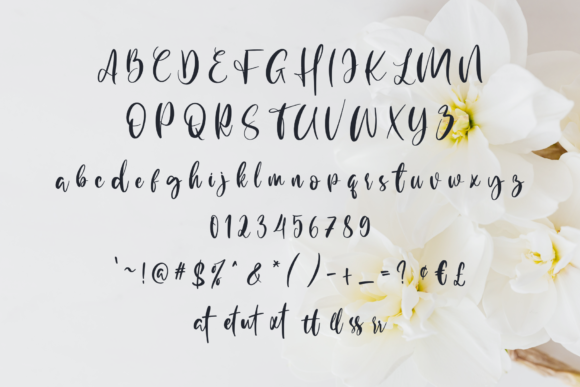 A B C D E F G H I J K L M N
O P Q R S T U V W X Y Z
a b c d e f g h i j k l m n o p q r s t u v w x y z
0 1 2 3 4 5 6 7 8 9
` ~ ! @ # $ % ^ & * ( ) - + _ = ? ¢ € £
at et ut ot tt ll ss rr